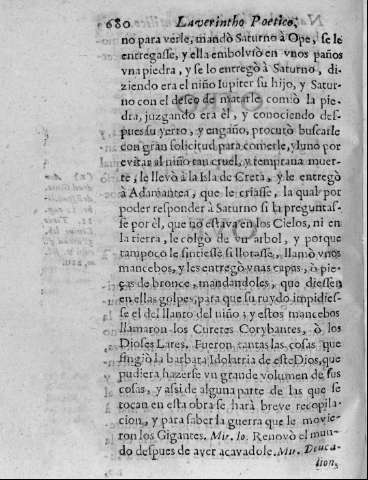 680 Laverintho Poetico,
no para verle, mandò Saturno à Ope, se le
entregasse, y ella embolviò en vnos paños
vna piedra, y se lo entregò à Saturno, di-
ziendo era el niño Iupiter su hijo, y Satur-
no con el deseo de matarle comiò la pie-
dra, juzgando era èl, y conociendo des-
pues su yerro, y engaño, procurò buscarle
con gran solicitud para comerle, y Iuno por
evitar al niño tan cruel, y temprana muer-
te, le llevò à la Isla de Creta, y le entregò
à Adamantea, que le criasse, la qual por
poder responder à Saturno si la preguntas-
se por èl, que no estava en los Cielos, ni en
la tierra, le colgò de vn arbol, y porque
tampoco le sintiesse si llorasse, llamò vnos
mancebos, y les entregò vnas capas, ò pie-
ças de bronce, mandandoles, que diessen
en ellas golpes, para que su ruydo impidies-
se el del llanto del niño; y estos mancebos
llamaron los Curetes Corybantes, ò los
Dioses Lares. Fueron tantas las cosas que
fingiò la barbara Idolatria de este Dios, que
pudiera hazerse vn grande volumen de sus
cosas, y assi de alguna parte de las que se
tocan en esta obra se harà breve recopila-
cion, y para saber la guerra que le movie-
ron los Gigantes. Mir. Io. Renovò el mun-
do despues de aver acavadole. Mir. Deuca-
lion,